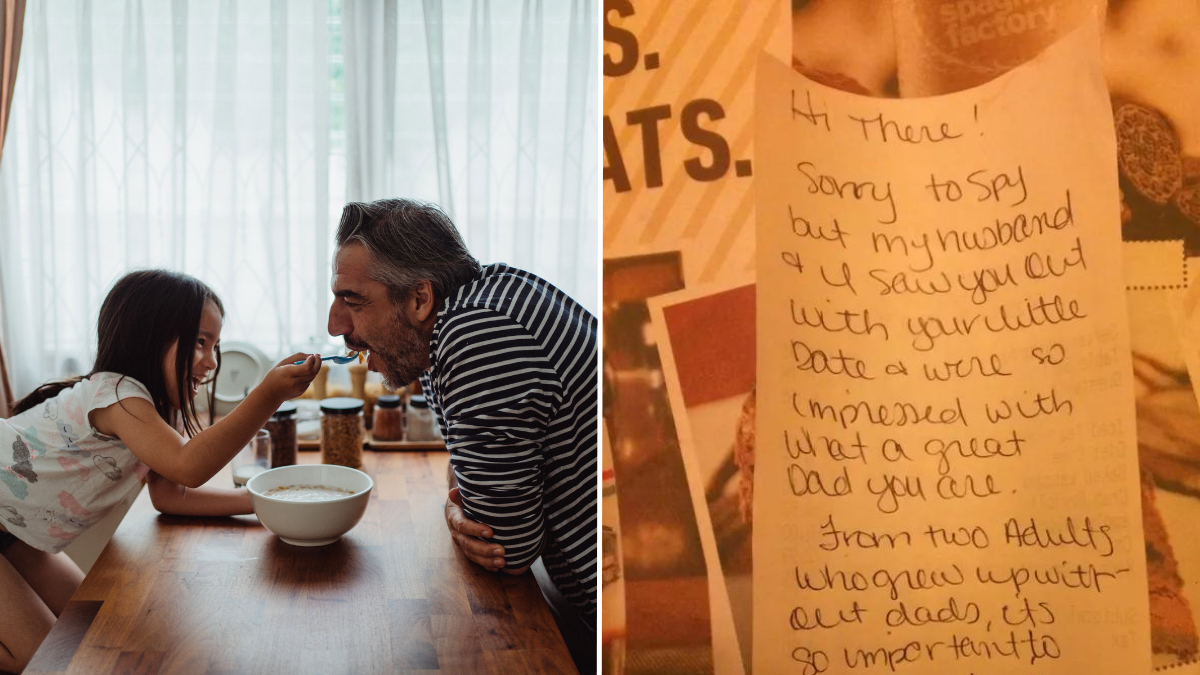 S.
ATS.
spaghetti
factory
Hi There!
Sorry to Spy
but my husband
& I saw you out
with your little
Date & were so
impressed with
what a great
Dad you are.
From two Adults
who grew up with-
out dads, its
so important to